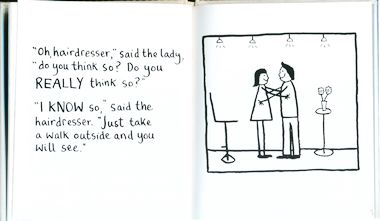 "Oh, hairdresser," said the lady,
"do you think so? Do you
REALLY think so?"
"I KNOW so," said the
hairdresser. "Just take
a walk outside and you
will see."